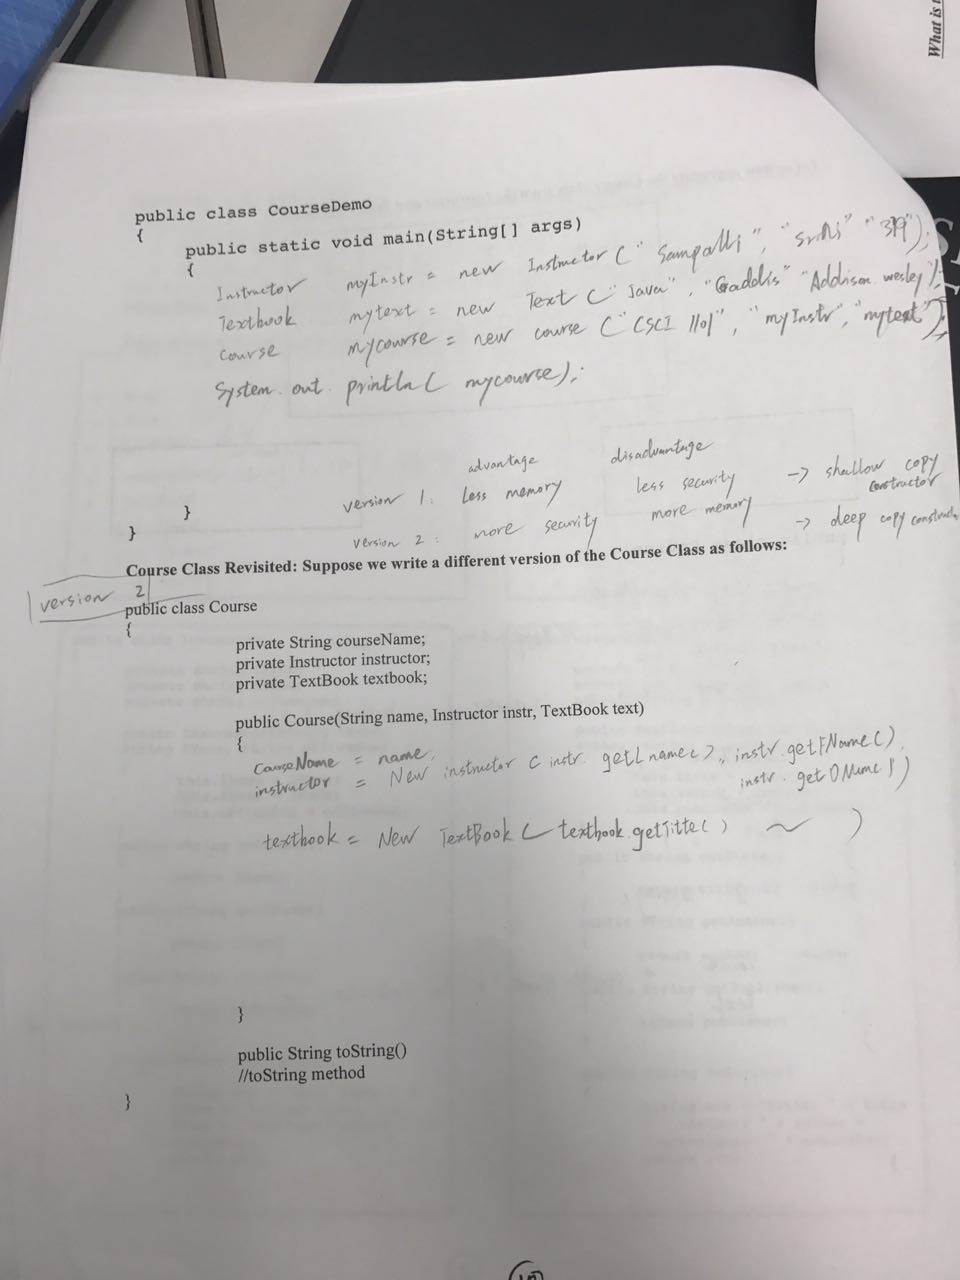 What is t
public class CourseDemo
{
public static void main(String[] args)
{
Instructor myInstr = new Instructor ("Sampalli", "Srini" "319");
Textbook mytext = new Text ("Java", "Gaddis" "Addison wesley");
Course mycourse = new course ("CSCI 1101", "myInstr", "mytext");
System. out. println( mycourse);
advantage disadvantage
version 1: Less memory less security -> shallow copy constructor
version 2: more security more memory -> deep copy
}
}
Course Class Revisited: Suppose we write a different version of the Course Class as follows:
version 2
public class Course
{
private String courseName;
private Instructor instructor;
private TextBook textbook;
public Course(String name, Instructor instr, TextBook text)
{
CourseName = name,
instructor = New instructor ( instr. getLname(), instr.getFName(),
instr. getONum( ))
textbook = New TextBook ( textbook.getTitle( ) ~ )
}
public String toString()
//toString method
}